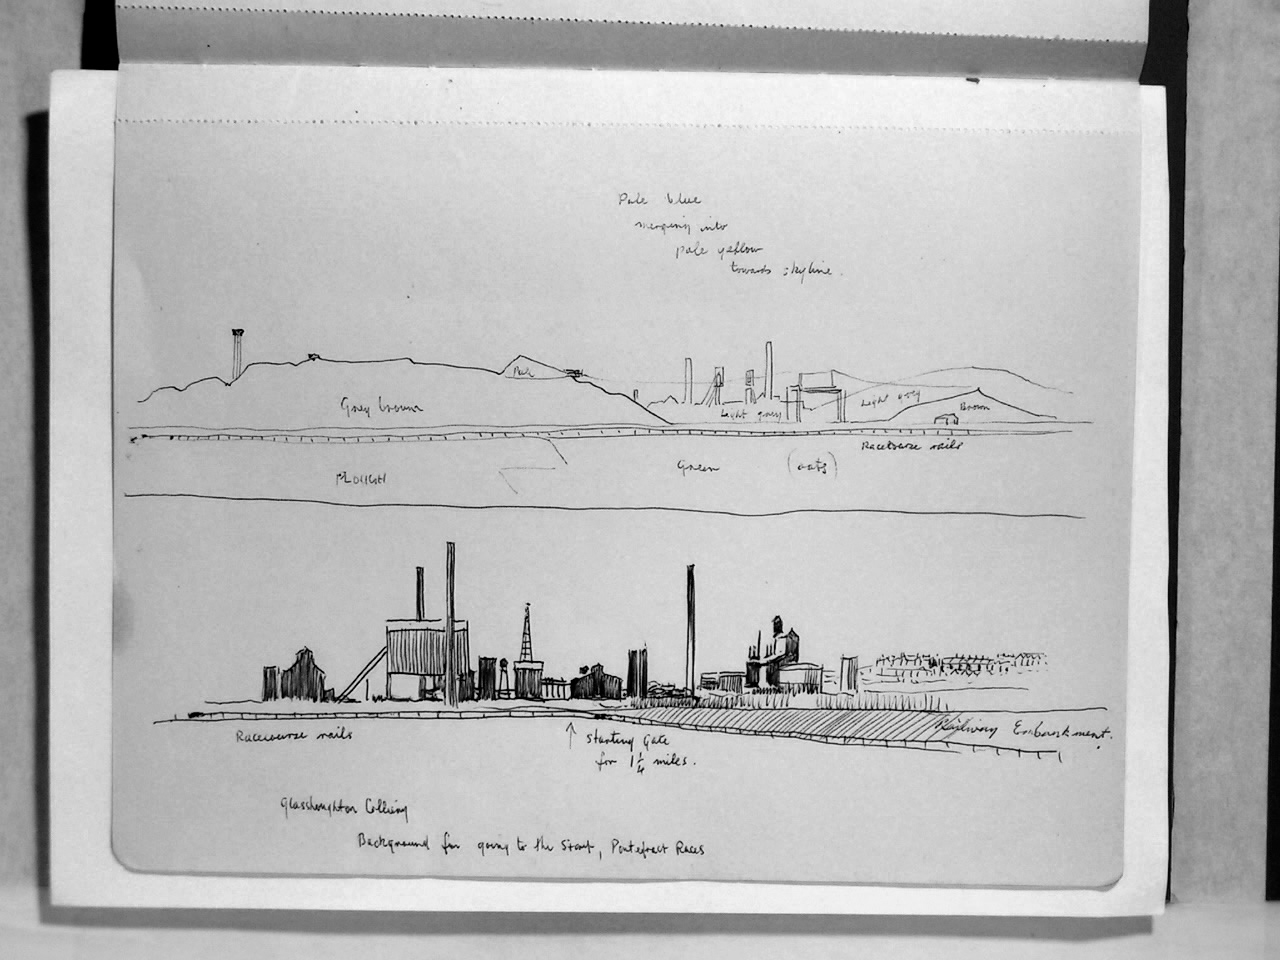 Pale blue
merging into
pale yellow
towards skyline.
Pale
Grey brown
Light grey
Light grey
Brown
Racecourse rails
PLOUGH
Green (oats)
Racecourse rails
↑ Starting Gate
for 1 1/4 miles.
Railway Embankment.
Glasshoughton Colliery
Background for going to the Start, Pontefract Races